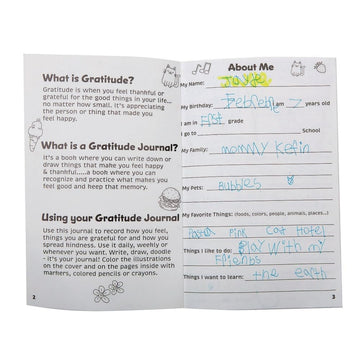 What is Gratitude?
Gratitude is when you feel thankful or
grateful for the good things in your life...
no matter how small. it's appreciating
the person or thing that made you
feel happy.
What is a Gratitude Journal?
It's a book where you can write down or
draw things that make you feel happy
& thankful.....a book where you can
recognize and practice what makes you
feel good and keep that memory.
Using your Gratitude Journal
Use this journal to record how you feel,
things you are grateful for and how you
spread kindness. Use it daily, weekly or
whenever you want. Write, draw, doodle
- it's your journal! Color the illustrations
on the cover and on the pages inside with
markers, colored pencils or crayons.
2
About Me
My Name:
My Birthday: I am 7 years old
I am in First grade
I go to School
My Family: mommy Kevin
My Pets: Bubbles
My Favorite Things: (foods, colors, people, animals, places...)
Pasta Pink Cat Hotel
Things I like to do: Play with my
Friends
Things I want to learn: the earth
3